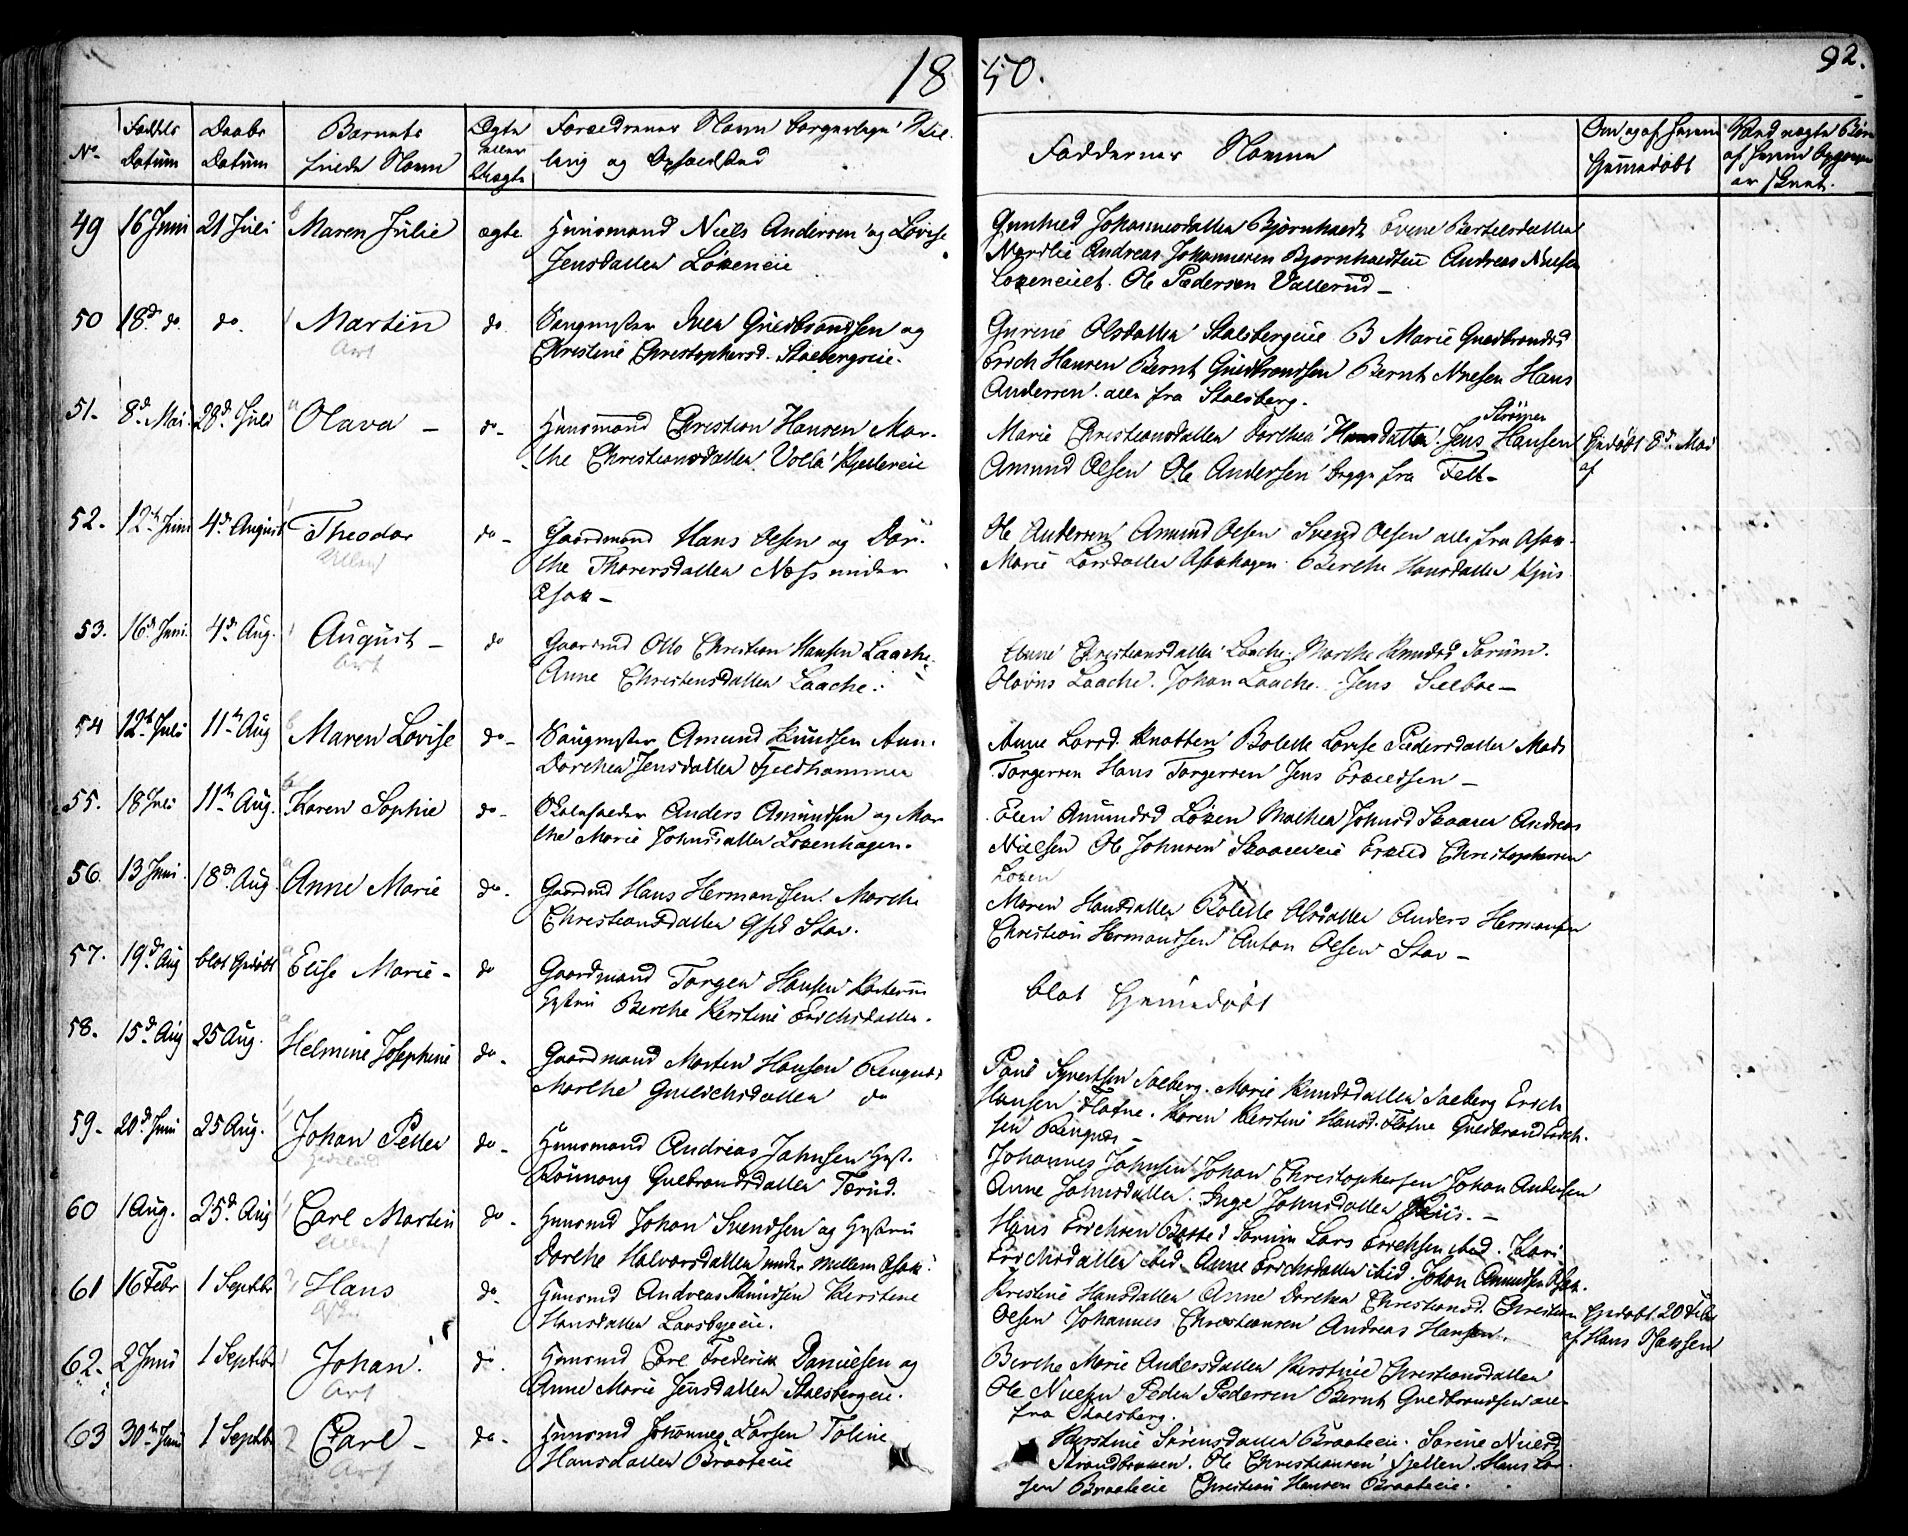 1850.
92.
No.
Fødsels Datum
Daabs Datum
Barnets fulde Navn
Ægte eller Uægte
Forældrenes Navn borgerlige Stilling og Opholdsted
Faddernes Navne
Om og af hvem hjemmedøbt
49 16 Juni 21 Juli Maren Julie ægte Huusmand Niels Andersen og Lovise
Jensdatter Løkeneie
Gunhild Johannesdatter Bjørnholdt Evene Bertelsdatter
Nordlie Andreas Johannesen Andreas Nielsen
Ole Pedersen Vallerud
50 18d do do Martin do Sven Guldbrandsen og
Christine Christophersd. Stalsbergeie.
Gurine Olsdatter Stalsbergeie B Marie Guldbrandsd
Erich Hansen Bernt Guldbrandsen Bernt Nielsen Hans
Andersen alle fra Stalsberg.
51. 8d Mai 28d Juli Olava do Huusmand Christian Hansen Mar-
the Christiansdatter Volla Kjellereie
Marie Christiansdatter Dorthea Hansdatter Jens Hansen
Strøm
Amund Olsen Ole Andersen begge fra Felt
Hjdøbt 8d Mai
af
52. 12t Juni 4d August Theodor do Gaardmand Hans Olsen og Dor-
the Thorersdatter Næss under
Asak
Ole Andersen Amund Olsen Svend Olsen alle fra Asak
Marie Larsdatter Asakhagen Berthe Hansdatter Kjus
53. 16d Juni 4d Aug. August do Gaardmd Otto Christian Hansen Laache
Anne Christensdatter Laache.
Anne Christiansdatter Laache. Marthe Knudsd Sørum.
Olavus Laache. Johan Laache. Jens
54 12t Juli 11te Aug Maren Lovise do Amund Knudsen Ann-
Dorthea Jensdatter Fjeldhammer
Anne Larsd. Knatten Bolette Lovise Pedersdatter Mads
Torgersen Hans Torgersen Jens Erlandsen
55. 18 Juli 11te Aug. Karen Sophie do Skoleholder Anders Amundsen og Mar-
the Marie Johnsdatter Løkenhagen.
Amundsd Løken Mathea Johnsd Skaarer Andreas
Nielsen Ole Johnsen Skaarereie Christophersen
Løken
56. 13 Juni 18de Aug Anne Marie do Gaardmd Hans Hermandsen Marthe
Christiansdatter Stav.
Maren Hansdatter Bolette Olsdatter Anders Hermansen
Christian Hermandsen Anton Olsen Stav
57. 19d Aug blot Hjdøbt Elise Marie do Gaardmand Torger Hansen
Hustru Berthe Kerstine Erichsdatter.
blot Hjemmedøbt
58. 15d Aug 25 Aug. Helmine Josephine do Gaardmand Morten Hansen Ringnæs
Marthe Gulichsdatter do
Paul Syvertsen Salberg. Marie Knudsdatter Salberg Erich
Hansen Flatne. Karen Kerstine Hansd. Flatne Guldbrand Erich-
sen Ringnæs
59. 20d Juni 25 Aug. Johan Petter do Huusmand Andreas Johnsen Hust.
Rønnaug Gulbrandsdatter Tærud.
Johannes Johnsen Johan Christophersen Johan Andersen
Anne Johnsdatter. Inge Johnsdatter
60 1 Aug. 25d Aug Carl Martin do Huusmd Johan Svendsen og Hustru
Dorthe Halvorsdatter under mellem Asak
Hans Erichsen Sørum Lars Erichsen ibid. Kari
Erichsdatter ibid Anne Erichsdatter ibid. Johan Amundsen
61 16 Febr 1 Septbr Hans do Huusmd Andreas Knudsen Kerstine
Hansdatter Laasbyeie.
Kristine Hansdatter Anne Dorthea Christiansd. Christian
Olsen Johannes Christiansen Andreas Hansen.
Hjdøbt 20 Febr
af Hans Hansen
62. 2 Juni 1 Septbr Johan do Huusmd Carl Frederik Danielsen og
Anne Marie Jensdatter Stalsbergeie.
Berthe Marie Andersdatter Kerstine Christiansdatter
Ole Nielsen Peder Pedersen Bernt Guldbrandsen alle
fra Stalsberg.
63 30te Juni 1 Septbr Carl do Huusmd Johannes Larsen Toline
Hansdatter Braateeie
Kerstine Sørensdatter Braateeie. Sørine Nielsd
Strandbraaten. Ole Christiansen Fjellen. Hans Lar-
sen Braateeie Christian Hansen Braateeie.